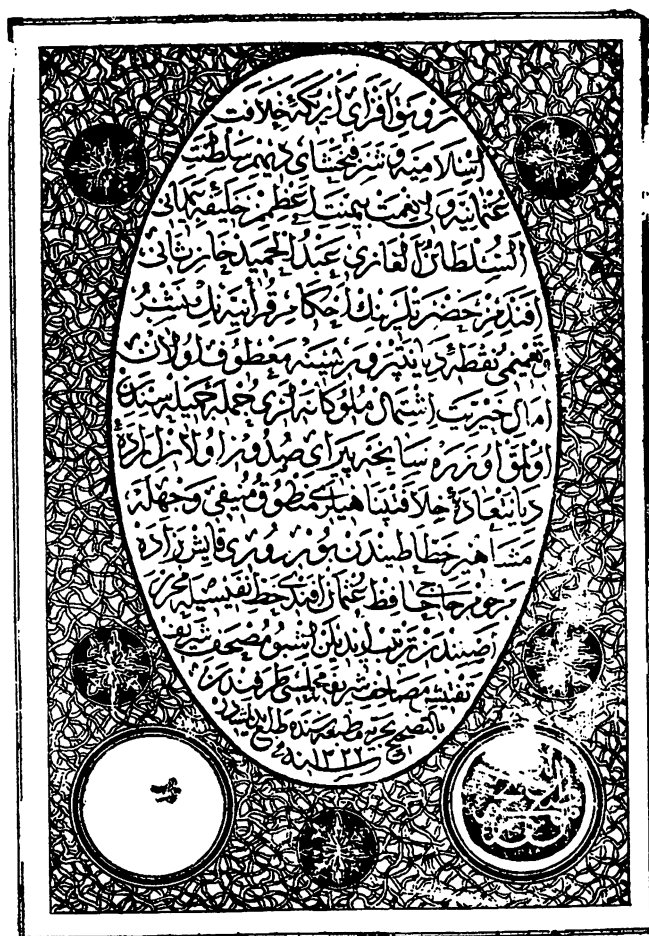 رونق افزای اریکهٔ خلافت
اسلامیه و شرفبخشای دیهیم سلطنت
عثمانیه ولی نعمت بیمنت اعظم خلیفهٔ
السلطان الغازی عبد الحمید خان ثانی
افندمز حضرتلرینك احکام قرآنیه نك نشر
و تعمیمی نقطهٔ دیانتپروریسنه معطوف اولان
امال خیریت اشتمال ملوکانه لری جملهٔ جمیله سندن
اولمق اوزره سانحه پیرای صدور اولان ارادهٔ
دیانتعادهٔ خلافتپناهیلری منطوق منیفی وجهله
مشاهیر خطاطیندن بوردوری قایش زاده
مرحوم حاج حافظ عثمان افندی خط نفیسیله محرر
اصلیندن ترتیب ایدیلن اشبو مصحف شریف
تفتیش مصاحف شریفه مجلسی طرفندن
بالتصحیح بحریه مطبعه سنده طبع
سنه ١٣٢٢